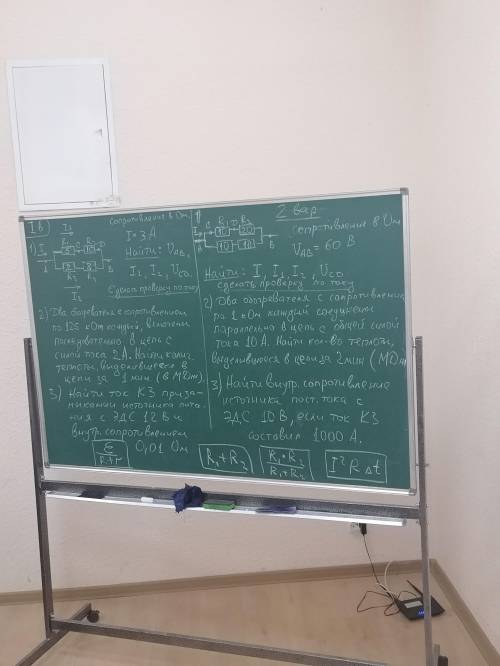 I в
сопротивление в Ом
I=3 А
1)
Найти: UАВ,
I1, I2, UСD.
Сделать проверку по току
2) Два обогревателя с сопротивлением
по 125 кОм каждый, включены
последовательно в цепь с
силой тока 2А. Найти колич.
теплоты, выделившееся в
цепи за 1 мин (в МДж).
3) Найти ток КЗ при за-
мыкании источника пита-
ния с ЭДС 12 В и
внутр. сопротивлением
0,01 Ом
ε
R+r
2 вар
R1 D R2
10 20
10 10
сопротивление в Ом
UАВ = 60 В
Найти: I, I1, I2, UCD
сделать проверку по току
2) Два обогревателя с сопротивлением
по 1 кОм каждый соединены
параллельно в цепь с общей силой
тока 10 А. Найти кол-во теплоты,
выделившееся в цепи за 2 мин (МДж)
3) Найти внутр. сопротивление
источника пост. тока с
ЭДС 10 В, если ток КЗ
составил 1000 А.
R1+R2
R1•R2
R1+R2
I²RΔt